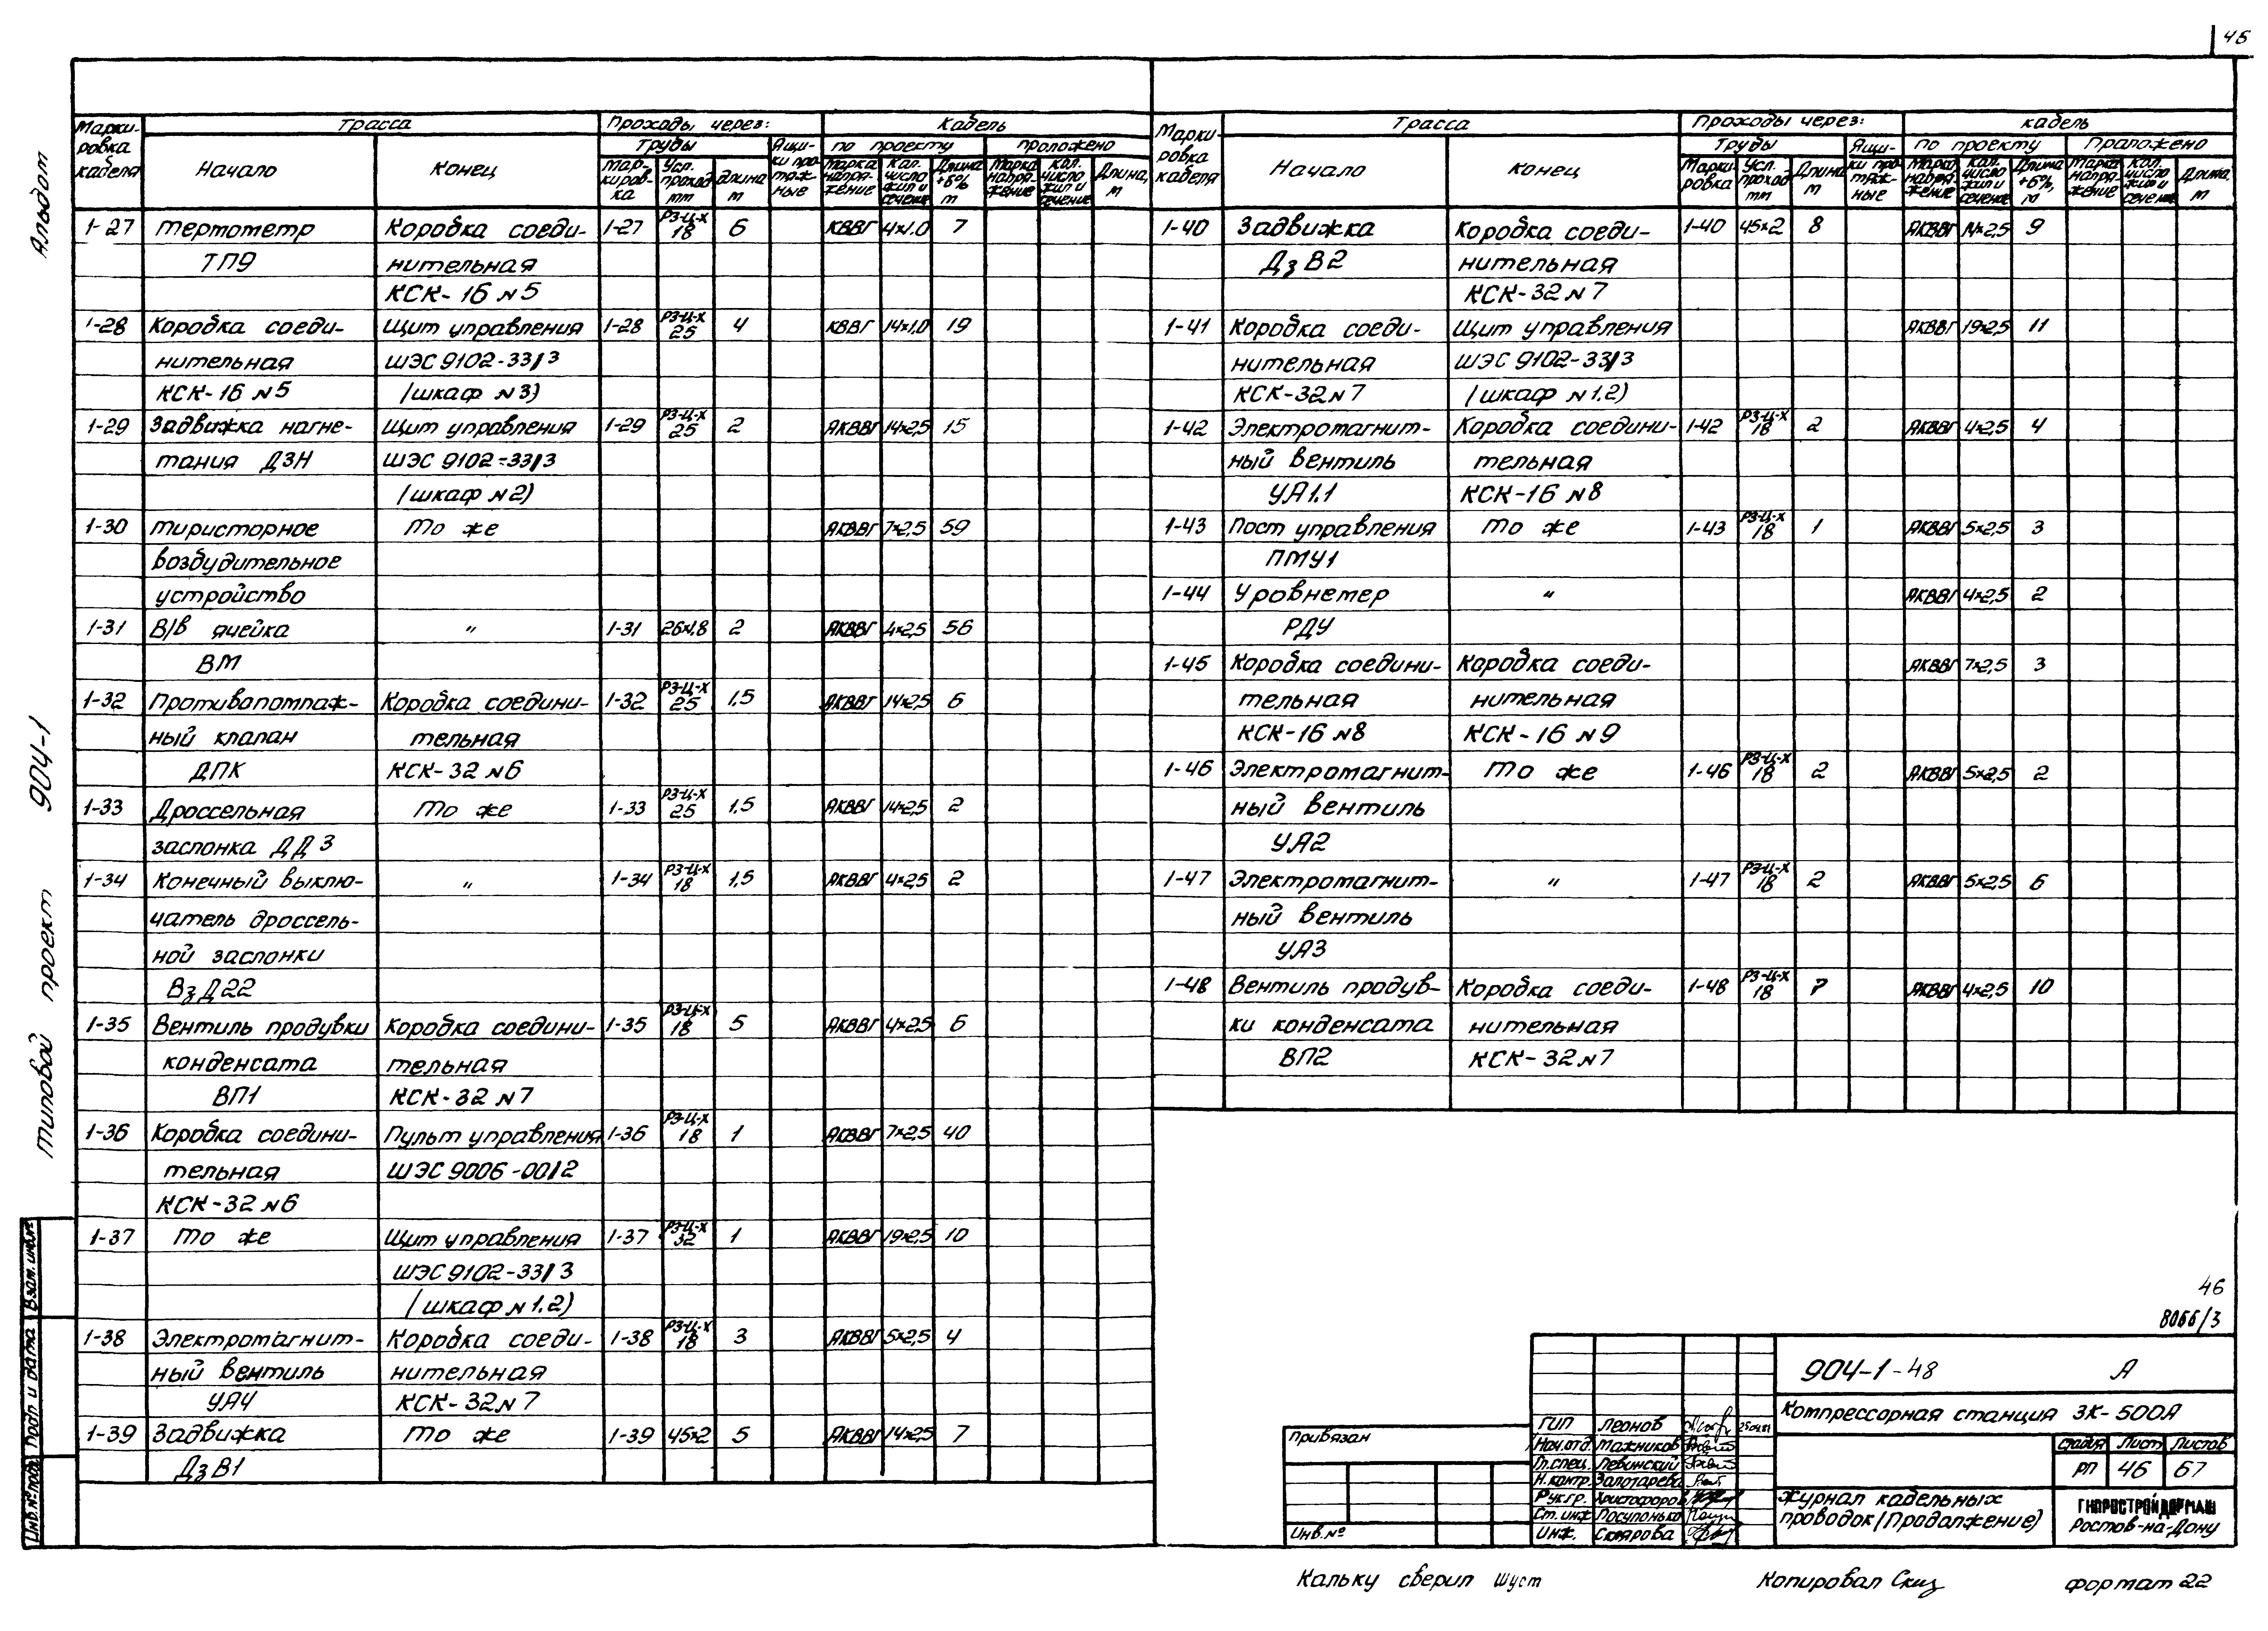 46
Альбом
Типовой проект 904-1
Марки-ровка кабеля | Трасса | Проходы через: | Кабель
Начало | Конец | Трубы | Ящи-ки про-тяж-ные | по проекту | проложено
Мар-киров-ка | Усл. проход мм | Длина м | Марка напря-жение | Кол. число жил и сечение | Длина +6% м | Марка напря-жение | Кол. число жил и сечение | Длина, м
1-27 Термометр Коробка соеди- 1-27 РЗ-Ц-Х 18 6 КВВГ 4х1,0 7
ТП9 нительная
КСК-16 №5
1-28 Коробка соеди- Щит управления 1-28 РЗ-Ц-Х 25 4 КВВГ 14х1,0 19
нительная ШЭС 9102-33/3
КСК-16 №5 (шкаф №3)
1-29 Задвижка нагне- Щит управления 1-29 РЗ-Ц-Х 25 2 АКВВГ 14х2,5 15
тания ДЗН ШЭС 9102-33/3
(шкаф №2)
1-30 Тиристорное То же АКВВГ 7х2,5 59
возбудительное
устройство
1-31 В/в ячейка " 1-31 26х1,8 2 АКВВГ 4х2,5 56
ВМ
1-32 Противопомпаж- Коробка соедини- 1-32 РЗ-Ц-Х 25 1,5 АКВВГ 14х2,5 6
ный клапан тельная
ДПК КСК-32 №6
1-33 Дроссельная То же 1-33 РЗ-Ц-Х 25 1,5 АКВВГ 14х2,5 2
заслонка ДДЗ
1-34 Конечный выклю- " 1-34 РЗ-Ц-Х 18 1,5 АКВВГ 4х2,5 2
чатель дроссель-
ной заслонки
ВзД22
1-35 Вентиль продувки Коробка соедини- 1-35 РЗ-Ц-Х 18 5 АКВВГ 4х2,5 6
конденсата тельная
ВП1 КСК-32 №7
1-36 Коробка соедини- Пульт управления 1-36 РЗ-Ц-Х 18 1 АКВВГ 7х2,5 40
тельная ШЭС 9006-00/2
КСК-32 №6
1-37 То же Щит управления 1-37 РЗ-Ц-Х 32 1 АКВВГ 19х2,5 10
ШЭС 9102-33/3
(шкаф №1,2)
1-38 Электромагнит- Коробка соеди- 1-38 РЗ-Ц-Х 18 3 АКВВГ 5х2,5 4
ный вентиль нительная
УА4 КСК-32 №7
1-39 Задвижка То же 1-39 45х2 5 АКВВГ 14х2,5 7
ДзВ1
Марки-ровка кабеля | Трасса | Проходы через: | кабель
Начало | Конец | Трубы | Ящи-ки про-тяж-ные | по проекту | Проложено
Марки-ровка | Усл. проход мм | Длина м | Марка напря-жение | Кол. число жил и сечение | Длина +6%, м | Марка напря-жение | Кол. число жил и сечение | Длина, м
1-40 Задвижка Коробка соеди- 1-40 45х2 8 АКВВГ 14х2,5 9
ДзВ2 нительная
КСК-32 №7
1-41 Коробка соеди- Щит управления АКВВГ 19х2,5 11
нительная ШЭС 9102-33/3
КСК-32 №7 (шкаф №1,2)
1-42 Электромагнит- Коробка соедини- 1-42 РЗ-Ц-Х 18 2 АКВВГ 4х2,5 4
ный вентиль тельная
УА1.1 КСК-16 №8
1-43 Пост управления То же 1-43 РЗ-Ц-Х 18 1 АКВВГ 5х2,5 3
ПМУ1
1-44 Уровнемер " АКВВГ 4х2,5 2
РДУ
1-45 Коробка соедини- Коробка соеди- АКВВГ 7х2,5 3
тельная нительная
КСК-16 №8 КСК-16 №9
1-46 Электромагнит- То же 1-46 РЗ-Ц-Х 18 2 АКВВГ 5х2,5 2
ный вентиль
УА2
1-47 Электромагнит- " 1-47 РЗ-Ц-Х 18 2 АКВВГ 5х2,5 6
ный вентиль
УА3
1-48 Вентиль продув- Коробка соеди- 1-48 РЗ-Ц-Х 18 7 АКВВГ 4х2,5 10
ки конденсата нительная
ВП2 КСК-32 №7
46
8066/3
904-1-48 А
Компрессорная станция 3К-500А
стадия Лист Листов
РП 46 67
Журнал кабельных
проводок (Продолжение)
ГИПРОСТРОЙДОРМАШ
Ростов-на-Дону
ГИП Леонов
Нач.отд. Мажников
Гл.спец. Левинский
Н.контр. Золотарева
Рук.гр. Христофоров
Ст.инж. Посупонько
Инж. Склярова
Привязан
Инв.№
Взам.инв.№
Подп. и дата
Инв.№ подл.
Кальку сверил Шуст
Копировал
Формат 22